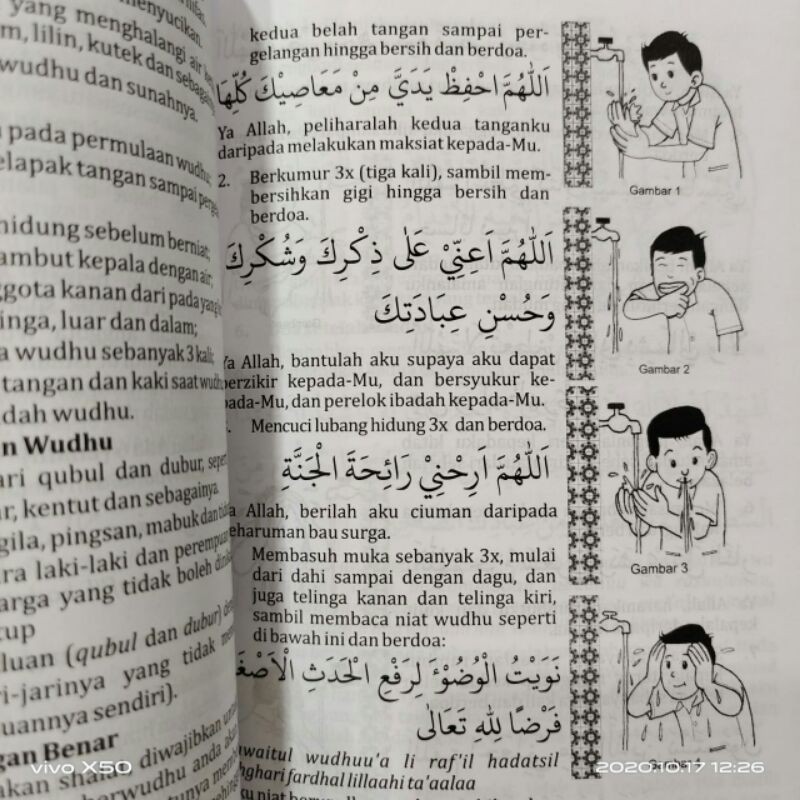 menyucikan.
yang menghalangi air
m, lilin, kutek dan sebagai
wudhu dan sunahnya.
pada permulaan wudhu
elapak tangan sampai perge
hidung sebelum berniat;
ambut kepala dengan air;
ggota kanan dari pada yang
inga, luar dan dalam;
a wudhu sebanyak 3 kali;
tangan dan kaki saat wudhu
dah wudhu.
n Wudhu
ari qubul dan dubur, sepert
r, kentut dan sebagainya.
gila, pingsan, mabuk dan
ra laki-laki dan perempuan
arga yang tidak boleh
tup
luan (qubul dan dubur)
ri-jarinya yang tidak
uannya sendiri).
gan Benar
akan shalat diwajibkan
berwudhu anda
kedua belah tangan sampai per-
gelangan hingga bersih dan berdoa.
اَللّٰهُمَّ احْفِظْ يَدَيَّ مِنْ مَعَاصِيْكَ كُلِّهَا
Ya Allah, peliharalah kedua tanganku
daripada melakukan maksiat kepada-Mu.
2. Berkumur 3x (tiga kali), sambil mem-
bersihkan gigi hingga bersih dan
berdoa.
اَللّٰهُمَّ اَعِنِّيْ عَلٰى ذِكْرِكَ وَشُكْرِكَ
وَحُسْنِ عِبَادَتِكَ
Ya Allah, bantulah aku supaya aku dapat
berzikir kepada-Mu, dan bersyukur ke-
pada-Mu, dan perelok ibadah kepada-Mu.
Mencuci lubang hidung 3x dan berdoa.
اَللّٰهُمَّ اَرِحْنِيْ رَائِحَةَ الْجَنَّةِ
a Allah, berilah aku ciuman daripada
eharuman bau surga.
Membasuh muka sebanyak 3x, mulai
dari dahi sampai dengan dagu, dan
juga telinga kanan dan telinga kiri,
sambil membaca niat wudhu seperti
di bawah ini dan berdoa:
نَوَيْتُ الْوُضُوْءَ لِرَفْعِ الْحَدَثِ الْاَصْغَ
فَرْضًا لِلّٰهِ تَعَالٰى
waitul wudhuu'a li raf'il hadatsil
ghari fardhal lillaahi ta'aalaa
ku niat berwudhu
Gambar 1
Gambar 2
Gambar 3
vivo X50
2020.10.17 12:26